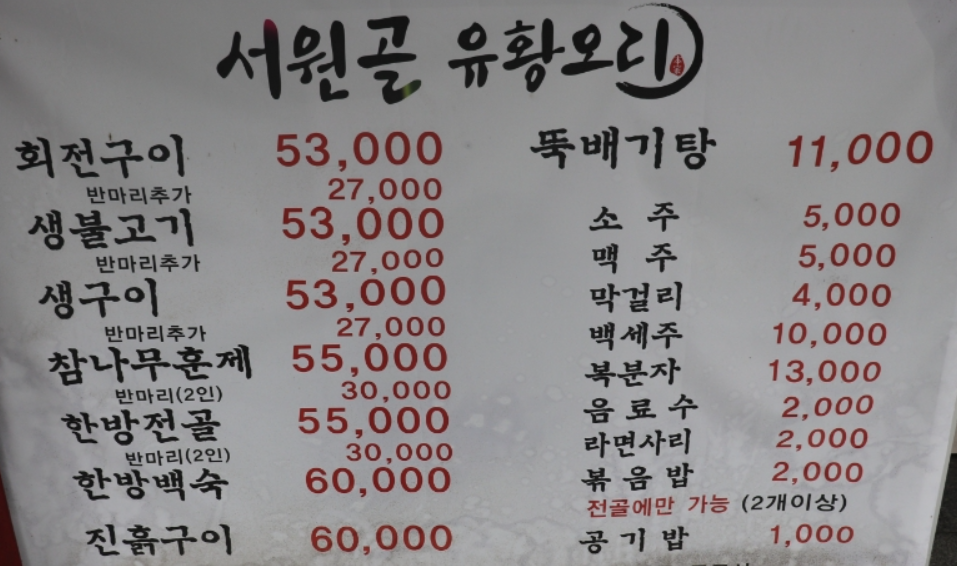 서원골 유황오리
회전구이 53,000
반마리추가 27,000
생불고기 53,000
반마리추가 27,000
생구이 53,000
반마리추가 27,000
참나무훈제 55,000
반마리(2인) 30,000
한방전골 55,000
반마리(2인) 30,000
한방백숙 60,000
진흙구이 60,000
뚝배기탕 11,000
소주 5,000
맥주 5,000
막걸리 4,000
백세주 10,000
복분자 13,000
음료수 2,000
라면사리 2,000
볶음밥 2,000
전골에만 가능 (2개이상)
공기밥 1,000